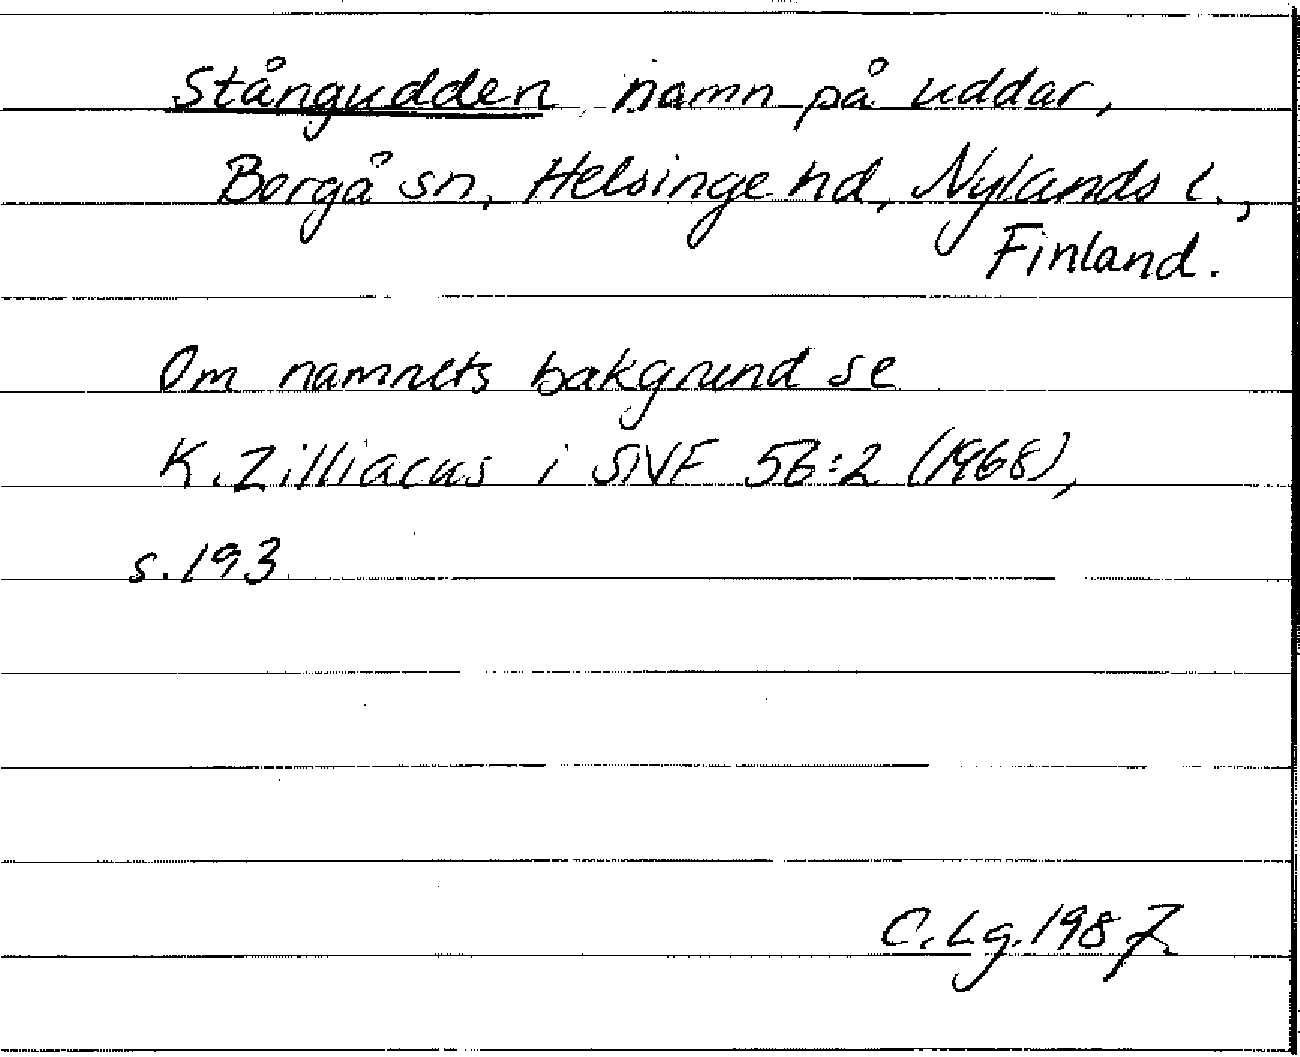 Stångudden, namn på uddar,
Borgå sn, Helsinge hd, Nylands l.,
Finland.
Om namnets bakgrund se
K. Zilliacus i SNF 56:2 (1968),
s. 193
C. Lg. 1987